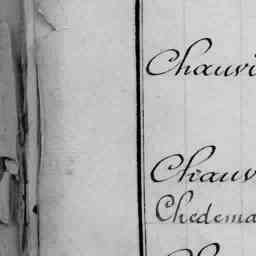 Chauvi
Chauv
Chedema